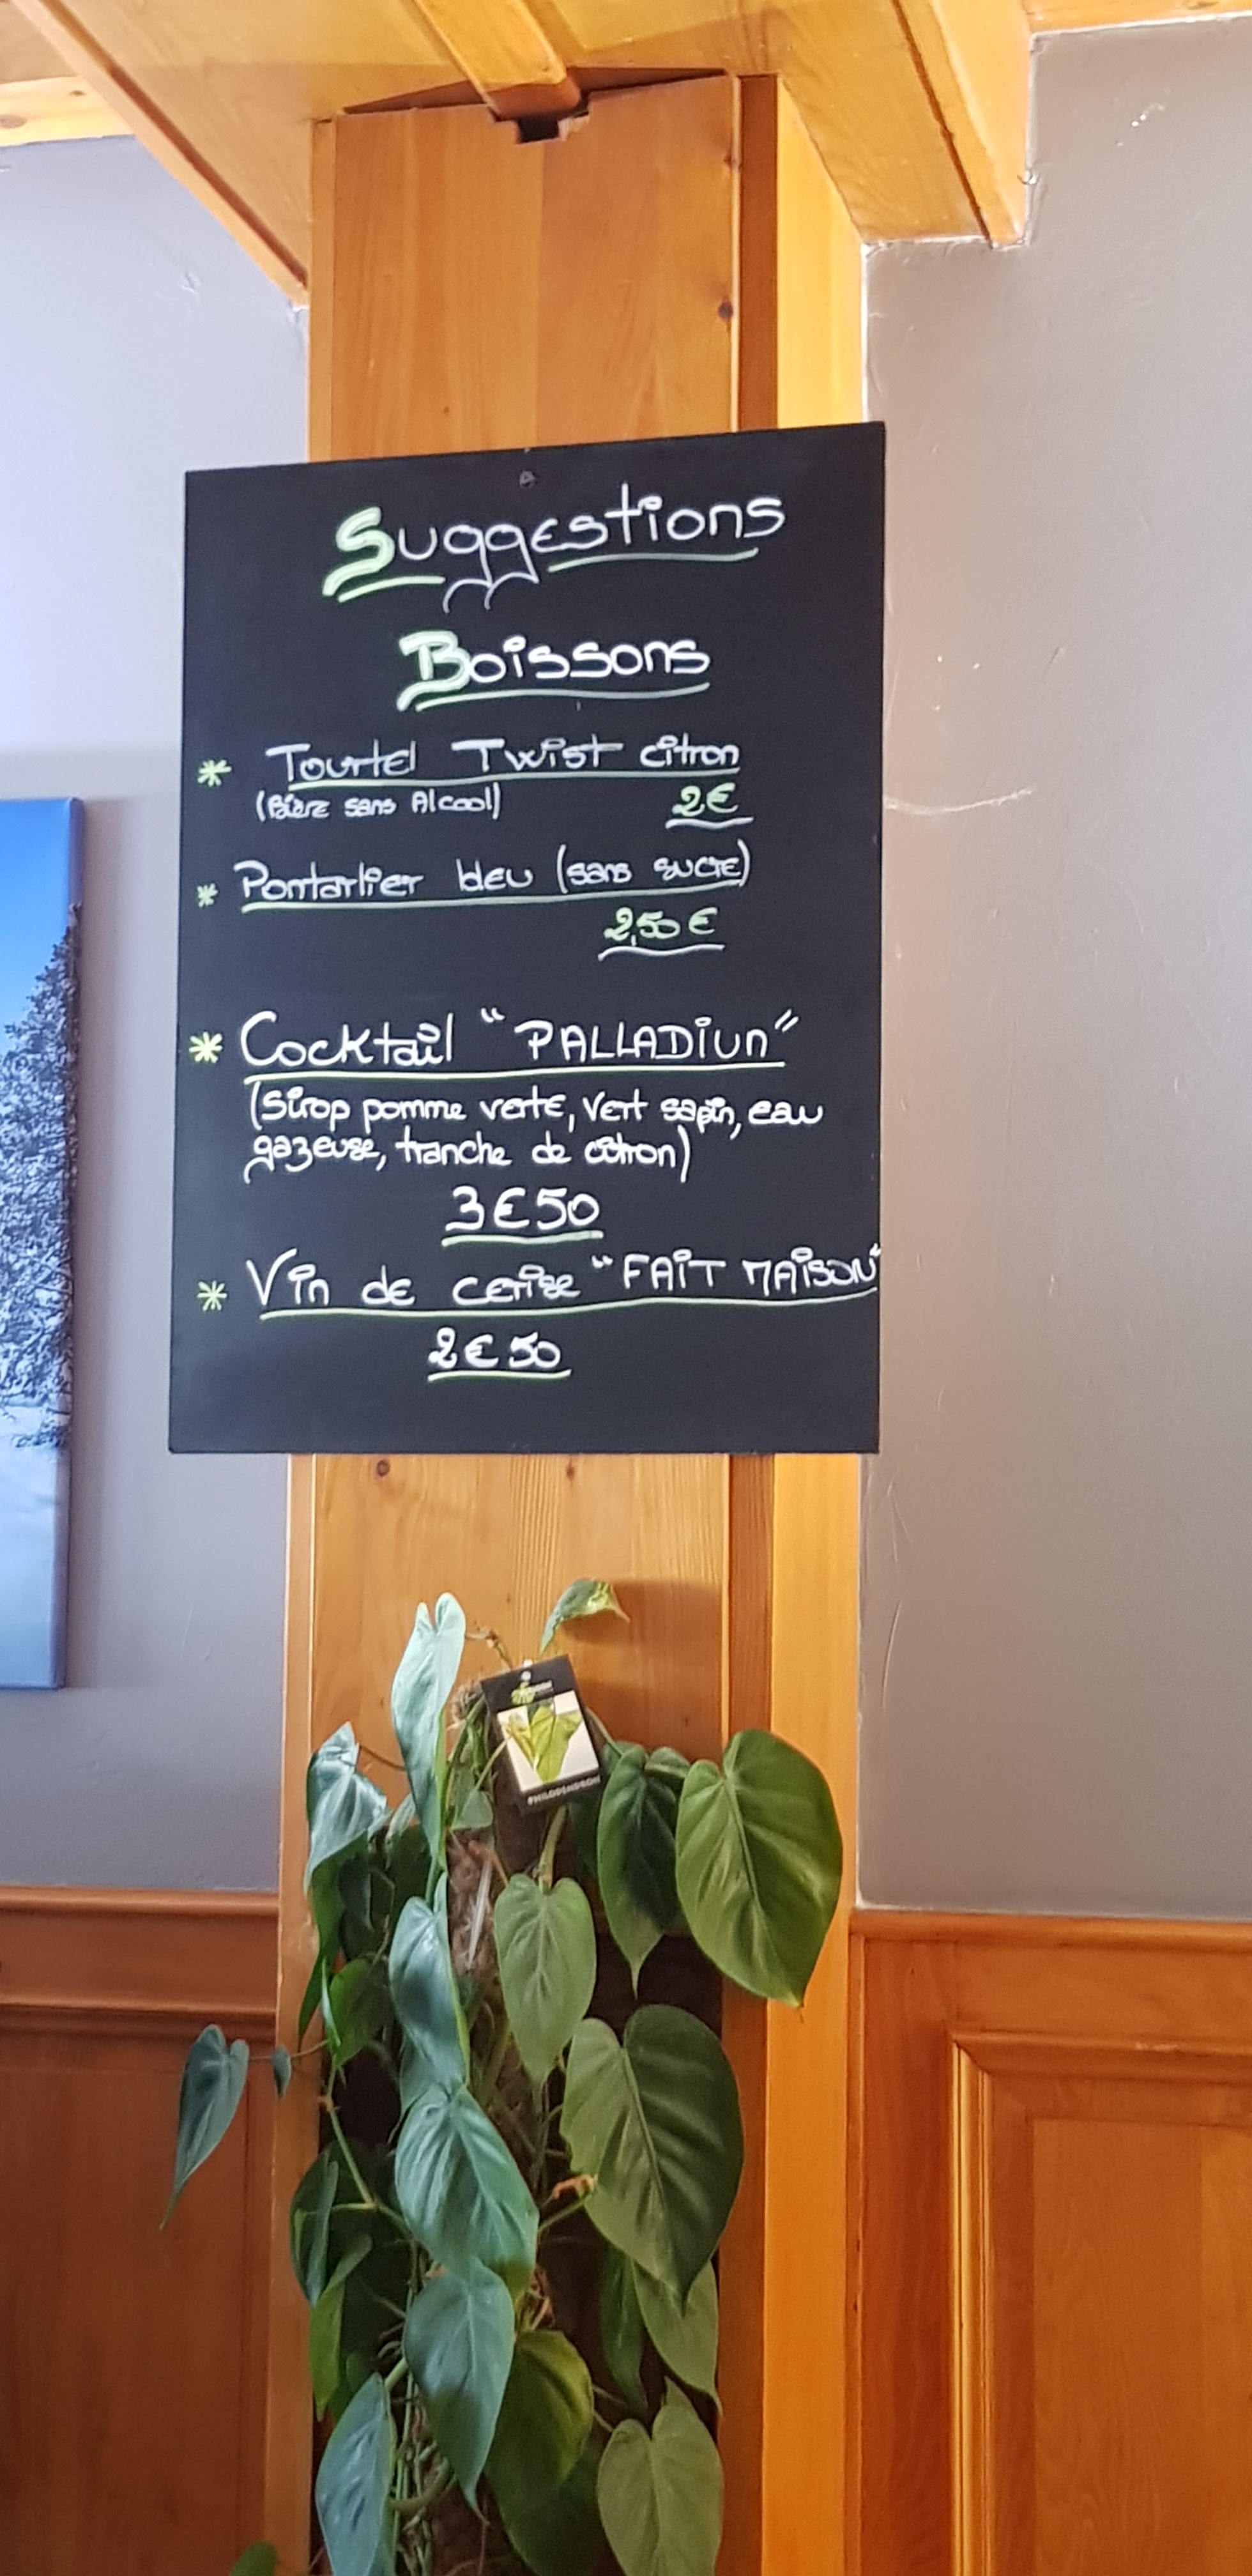 Suggestions
Boissons
* Tourtel Twist citron
(Bière sans Alcool) 2€
* Pontarlier bleu (sans sucre)
2,50€
* Cocktail "PALLADiUM"
(Sirop pomme verte, Vert sapin, eau
gazeuse, tranche de citron)
3€50
* Vin de cerise "FAiT MAiSON"
2€50
PHILODENDRON